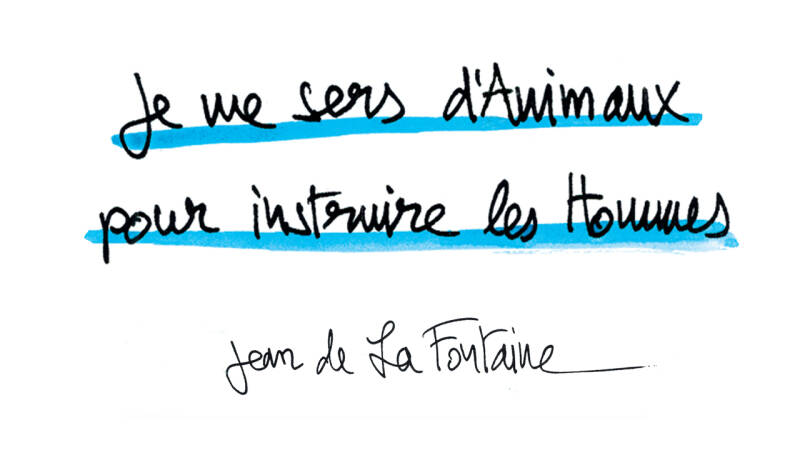 Je me sers d'Animaux
pour instruire les Hommes
Jean de La Fontaine